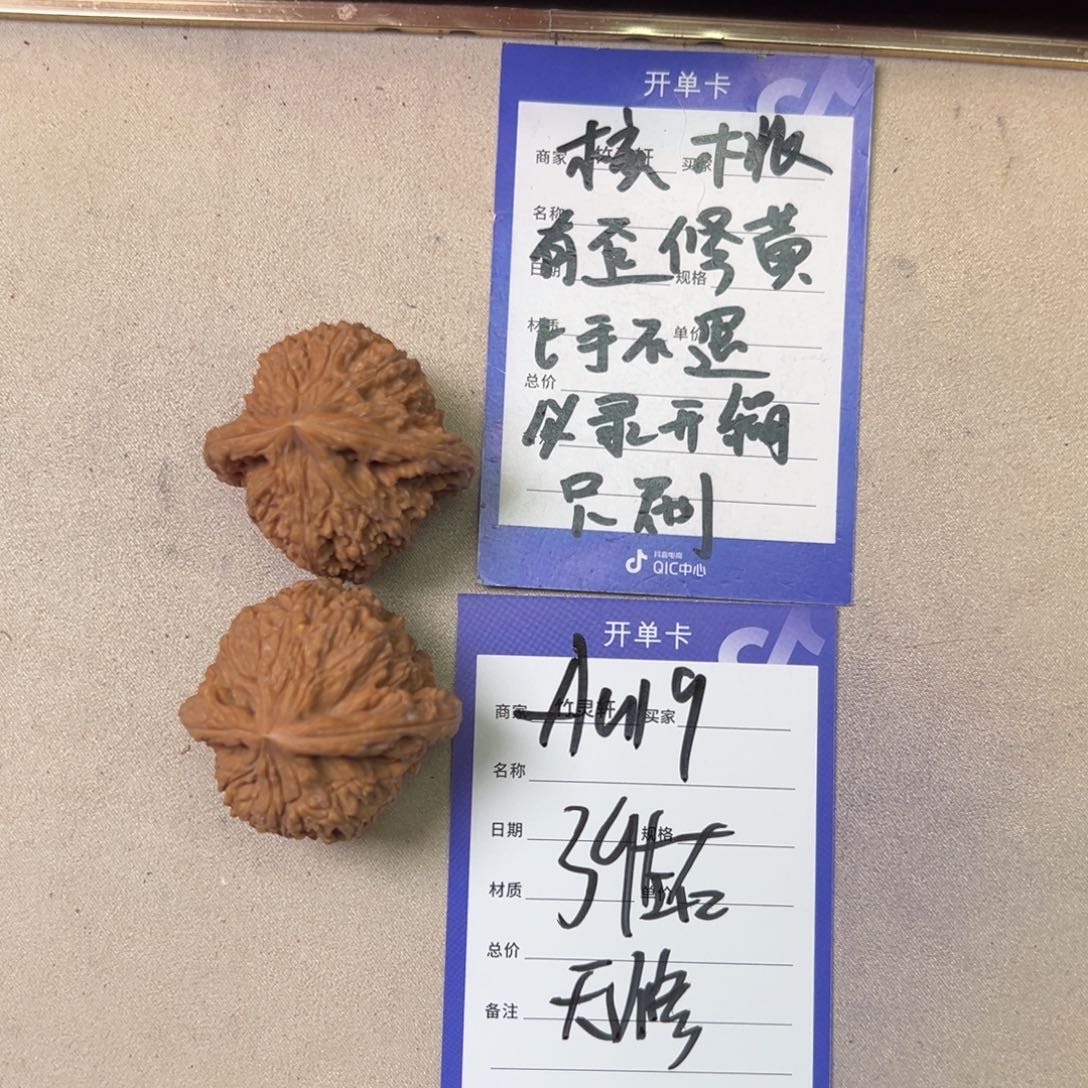 开单卡
核桃
商家 竹灵轩 买家
名称
有歪修黄
日期 规格
上手不退
材质 单价
总价
必录开箱
只刷
抖音电商
QIC中心
开单卡
Au19
商家 竹灵轩 买家
名称
日期 规格
39左右
材质 单价
总价
无修
备注